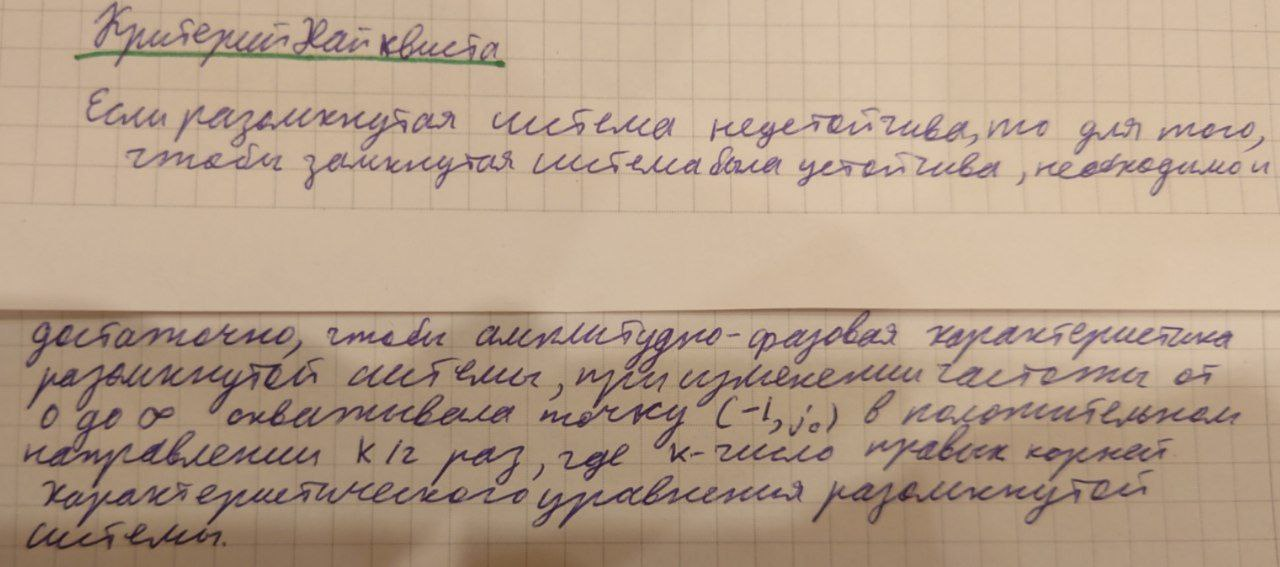 Критерий Найквиста
Если разомкнутая система неустойчива, то для того,
чтобы замкнутая система была устойчива, необходимо и
достаточно, чтобы амплитудно-фазовая характеристика
разомкнутой системы, при изменении частоты от
0 до ∞ охватывала точку (-1, j0) в положительном
направлении k/2 раз, где k-число правых корней
характеристического уравнения разомкнутой
системы.